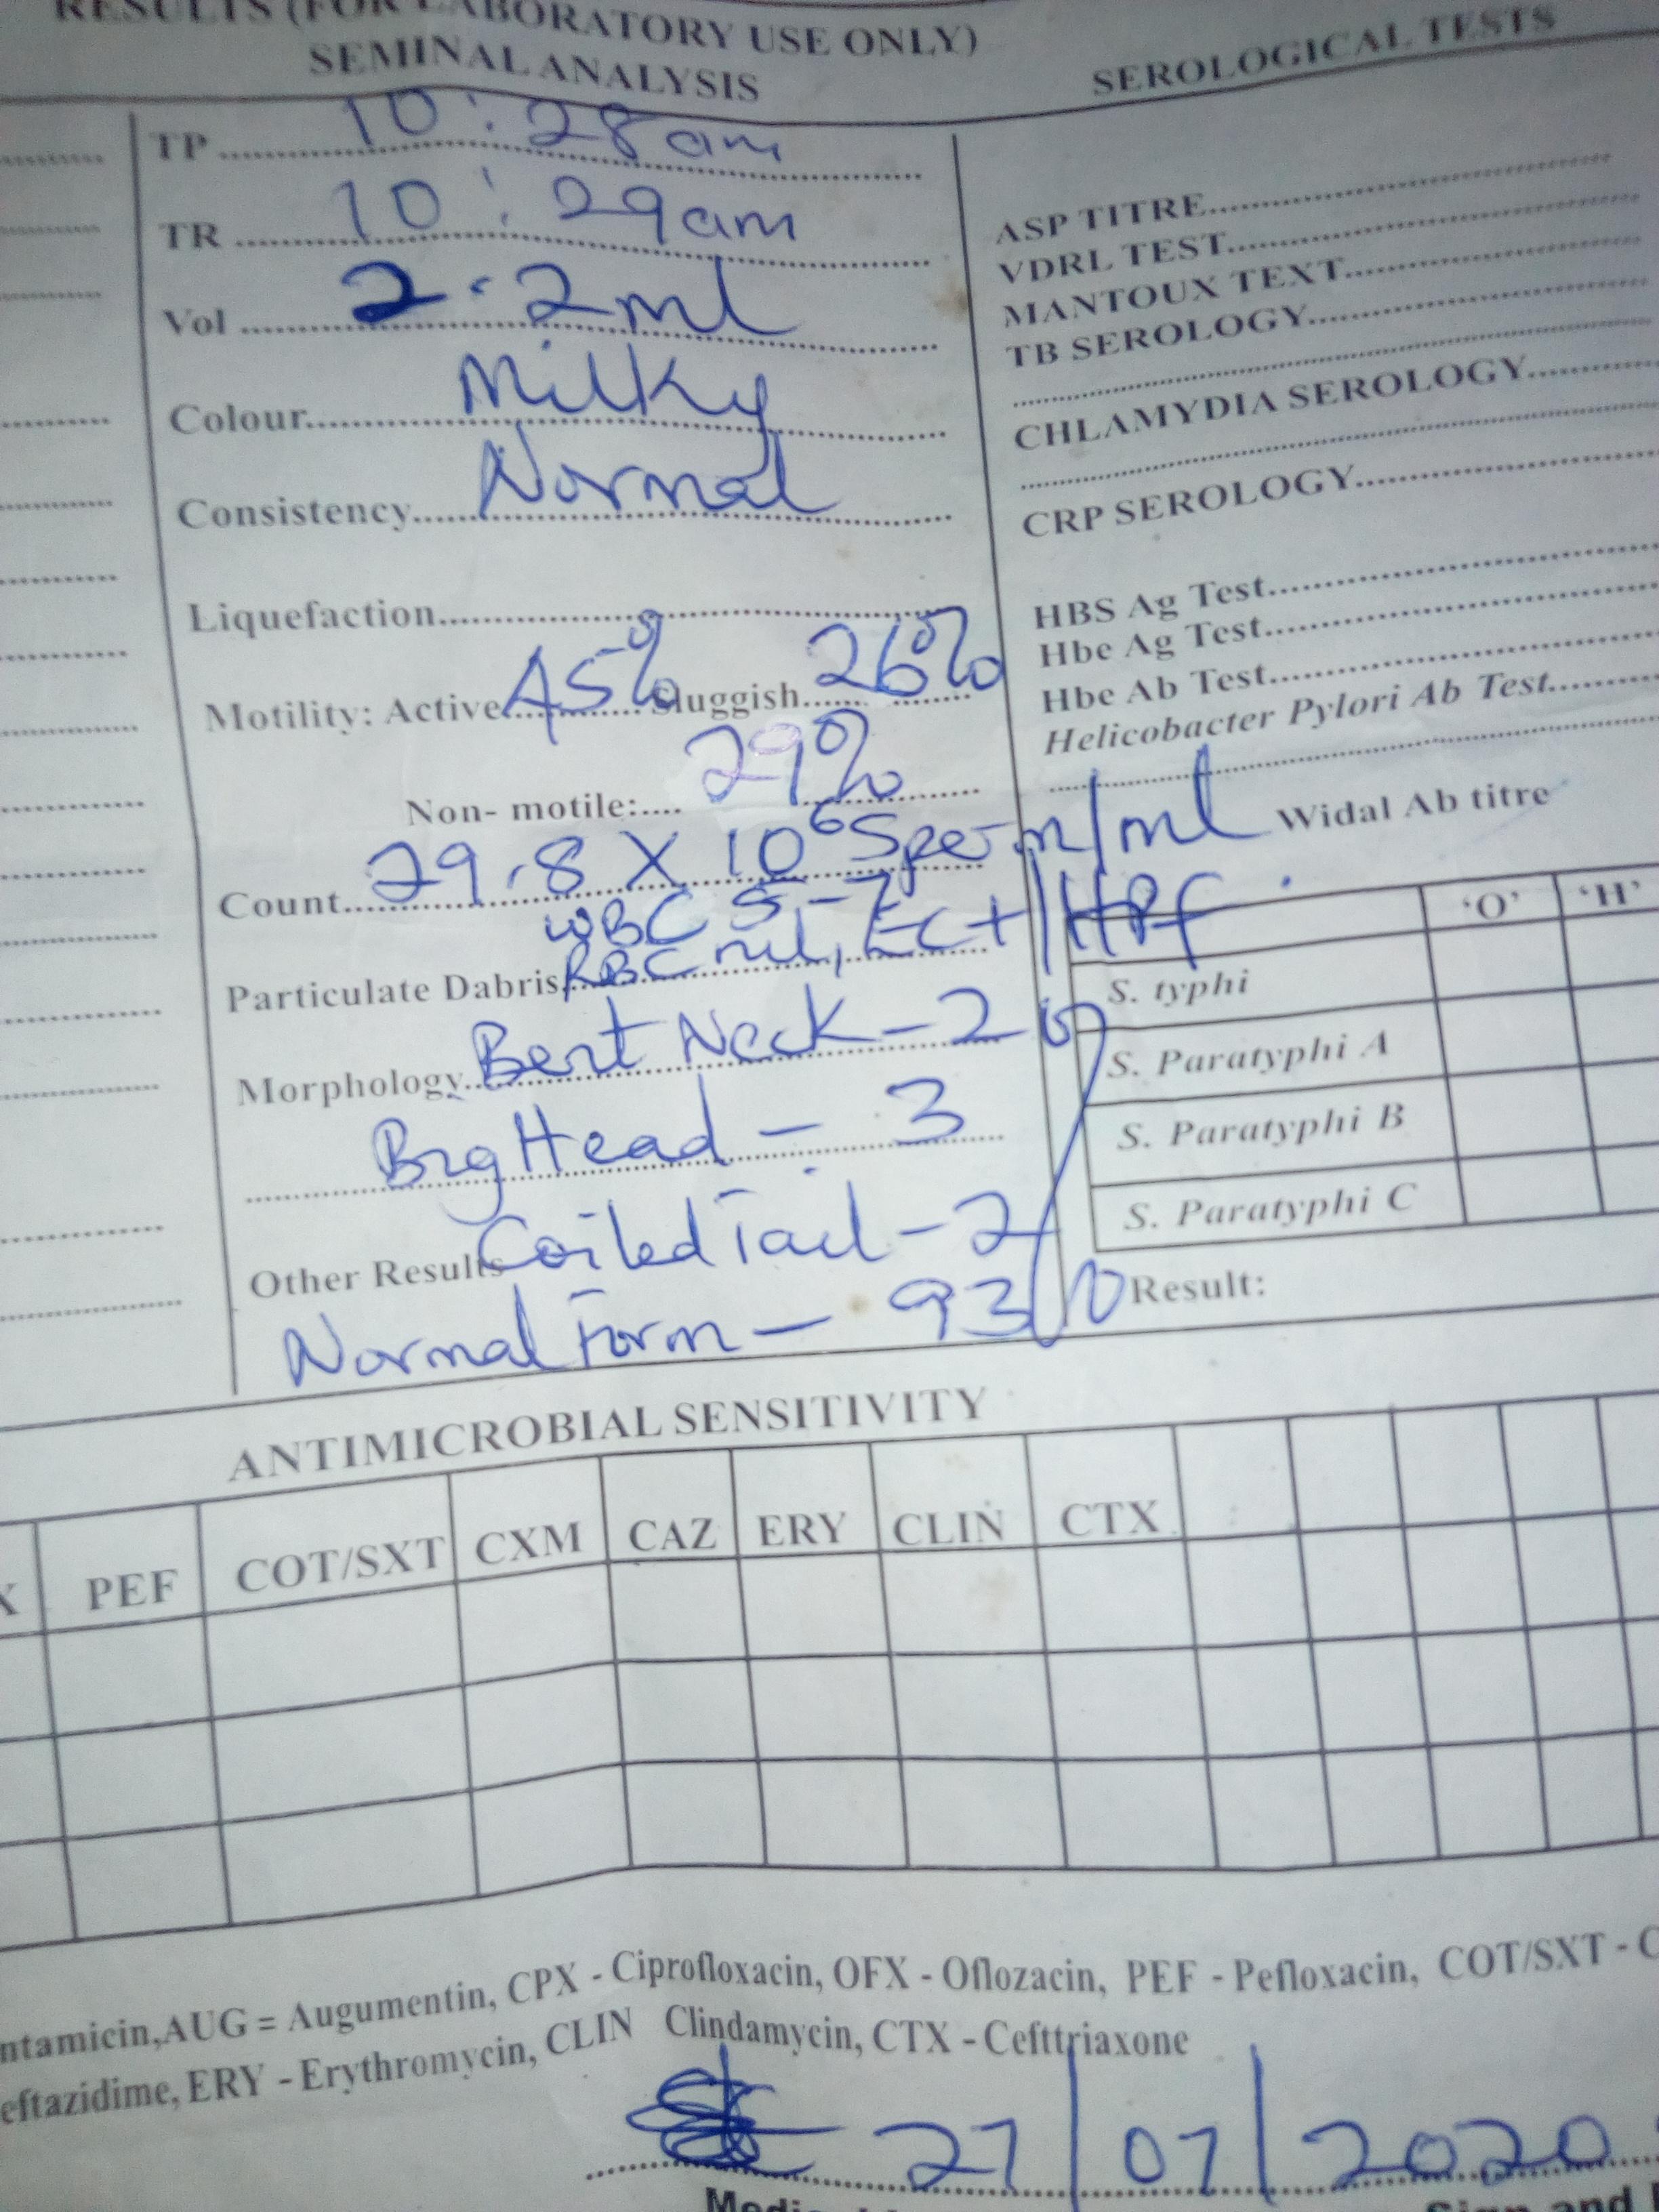 RESULTS (FOR LABORATORY USE ONLY)
SEMINAL ANALYSIS
TP 10:28am
TR 10:29am
Vol 2.2ml
Colour Milky
Consistency Normal
Liquefaction
Motility: Active 45% Sluggish 26%
Non- motile: 29%
Count 29.8 X 10⁶ Sperm/ml
WBC 5-7
Particulate Dabris RBC nil, EC+/HPF
Morphology Bent Neck - 2
Big Head - 3
Other Results Coiled Tail - 2
Normal Form - 93
%
SEROLOGICAL TESTS
ASP TITRE
VDRL TEST
MANTOUX TEXT
TB SEROLOGY
CHLAMYDIA SEROLOGY
CRP SEROLOGY
HBS Ag Test
Hbe Ag Test
Hbe Ab Test
Helicobacter Pylori Ab Test
Widal Ab titre
'O' 'H'
S. typhi
S. Paratyphi A
S. Paratyphi B
S. Paratyphi C
Result:
ANTIMICROBIAL SENSITIVITY
X PEF COT/SXT CXM CAZ ERY CLIN CTX
ntamicin,AUG = Augumentin, CPX - Ciprofloxacin, OFX - Oflozacin, PEF - Pefloxacin, COT/SXT - C
eftazidime, ERY - Erythromycin, CLIN Clindamycin, CTX - Cefttriaxone
27/07/2020